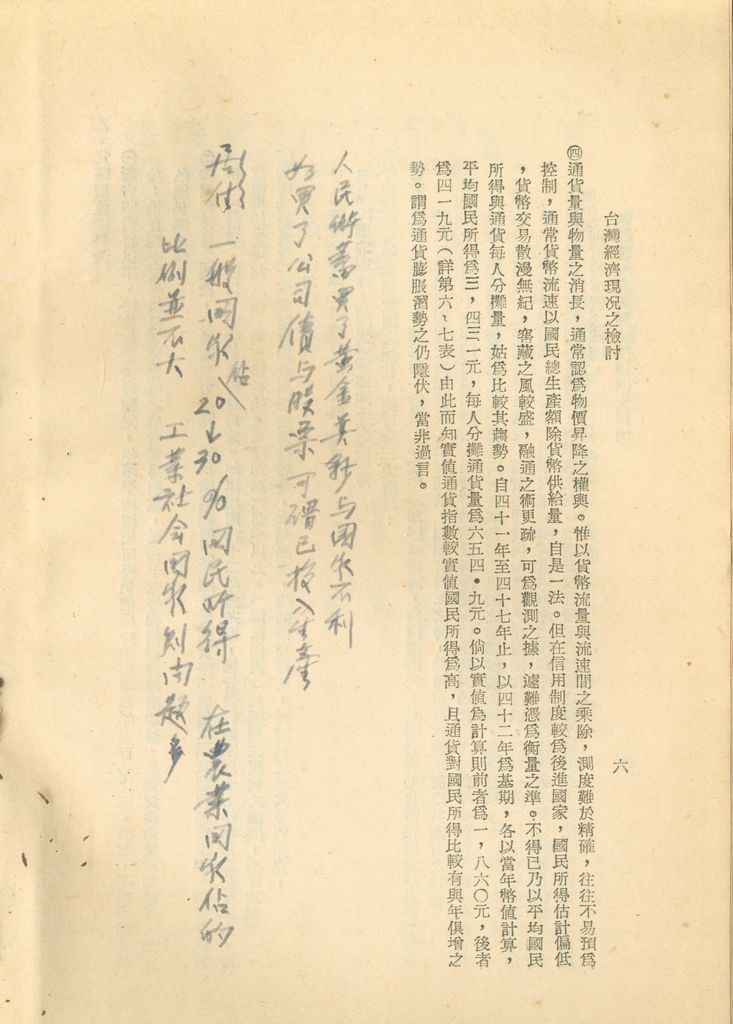 台灣經濟現況之檢討
六
㈣通貨量與物量之消長，通常認爲物價昇降之權輿。惟以貨幣流量與流速間之乘除，測度難於精確，往往不易預爲
控制，通常貨幣流速以國民總生產額除貨幣供給量，自是一法。但在信用制度較爲後進國家，國民所得估計偏低
，貨幣交易散漫無紀，窖藏之風較盛，融通之術更疏，可爲觀測之據，遽難憑爲衡量之準。不得已乃以平均國民
所得與通貨每人分攤量，姑爲比較其趨勢。自四十一年至四十七年止，以四十二年爲基期，各以當年幣值計算，
平均國民所得爲三，四三一元，每人分攤通貨量爲六五四•九元。倘以實值爲計算則前者爲一，八六〇元，後者
爲四一九元（詳第六、七表）由此而知實值通貨指數較實值國民所得爲高，且通貨對國民所得比較有與年俱增之
勢。謂爲通貨膨脹潛勢之仍隱伏，當非過言。
人民儲蓄買了黃金美鈔与国家不利
如買了公司債与股票可謂已投入生產
居住 一般国家佔20↓30%国民所得 在農業国家佔的
比例並不大 工業社会国家則問題多